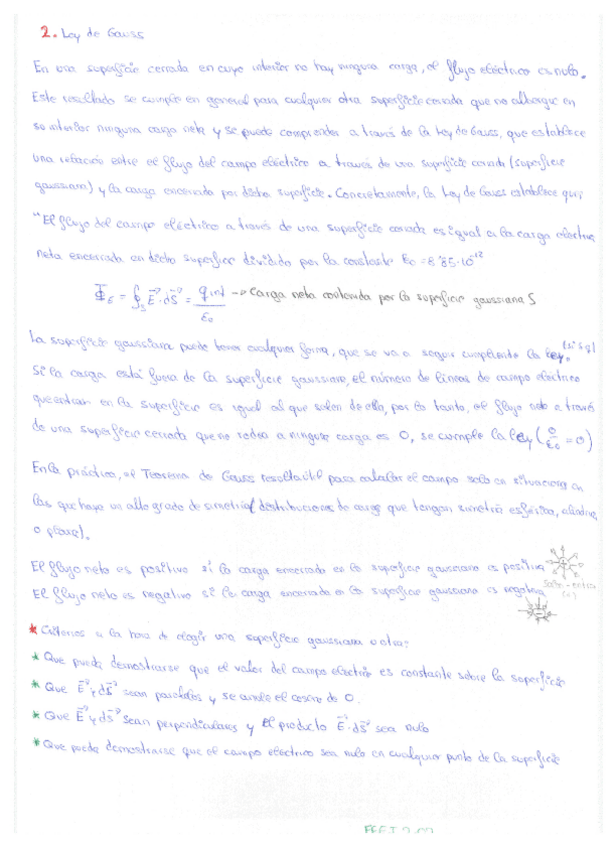 2. Ley de Gauss
En una superficie cerrada en cuyo interior no hay ninguna carga, el flujo eléctrico es nulo.
Este resultado se cumple en general para cualquier otra superficie cerrada que no albergue en
su interior ninguna carga neta y se puede comprender a través de la Ley de Gauss, que establece
una relación entre el flujo del campo eléctrico a través de una superficie cerrada (superficie
gaussiana) y la carga encerrada por dicha superficie. Concretamente, la Ley de Gauss establece que:
"El flujo del campo eléctrico a través de una superficie cerrada es igual a la carga eléctrica
neta encerrada en dicha superficie dividido por la constante ε₀ = 8'85·10⁻¹²
Φ_E = ∮_S E⃗·dS⃗ = q int / ε₀ -> Carga neta contenida por la superficie gaussiana S
La superficie gaussiana puede tener cualquier forma, que se va a seguir cumpliendo la ley.
Si la carga está fuera de la superficie gaussiana, el número de líneas de campo eléctrico
que entran en la superficie es igual al que salen de ella, por lo tanto, el flujo neto a través
de una superficie cerrada que no rodea a ninguna carga es 0, se cumple la ley (0/ε₀ = 0)
En la práctica, el Teorema de Gauss resulta útil para calcular el campo solo en situaciones en
las que haya un alto grado de simetría (distribuciones de carga que tengan simetría esférica, cilíndrica
o plana).
El flujo neto es positivo si la carga encerrada en la superficie gaussiana es positiva
El flujo neto es negativo si la carga encerrada en la superficie gaussiana es negativa
* Criterios a la hora de elegir una superficie gaussiana u otra:
* Que pueda demostrarse que el valor del campo eléctrico es constante sobre la superficie
* Que E⃗ y dS⃗ sean paralelos y se anule el coseno de 0.
* Que E⃗ y dS⃗ sean perpendiculares y el producto E⃗·dS⃗ sea nulo
* Que pueda demostrarse que el campo eléctrico sea nulo en cualquier punto de la superficie